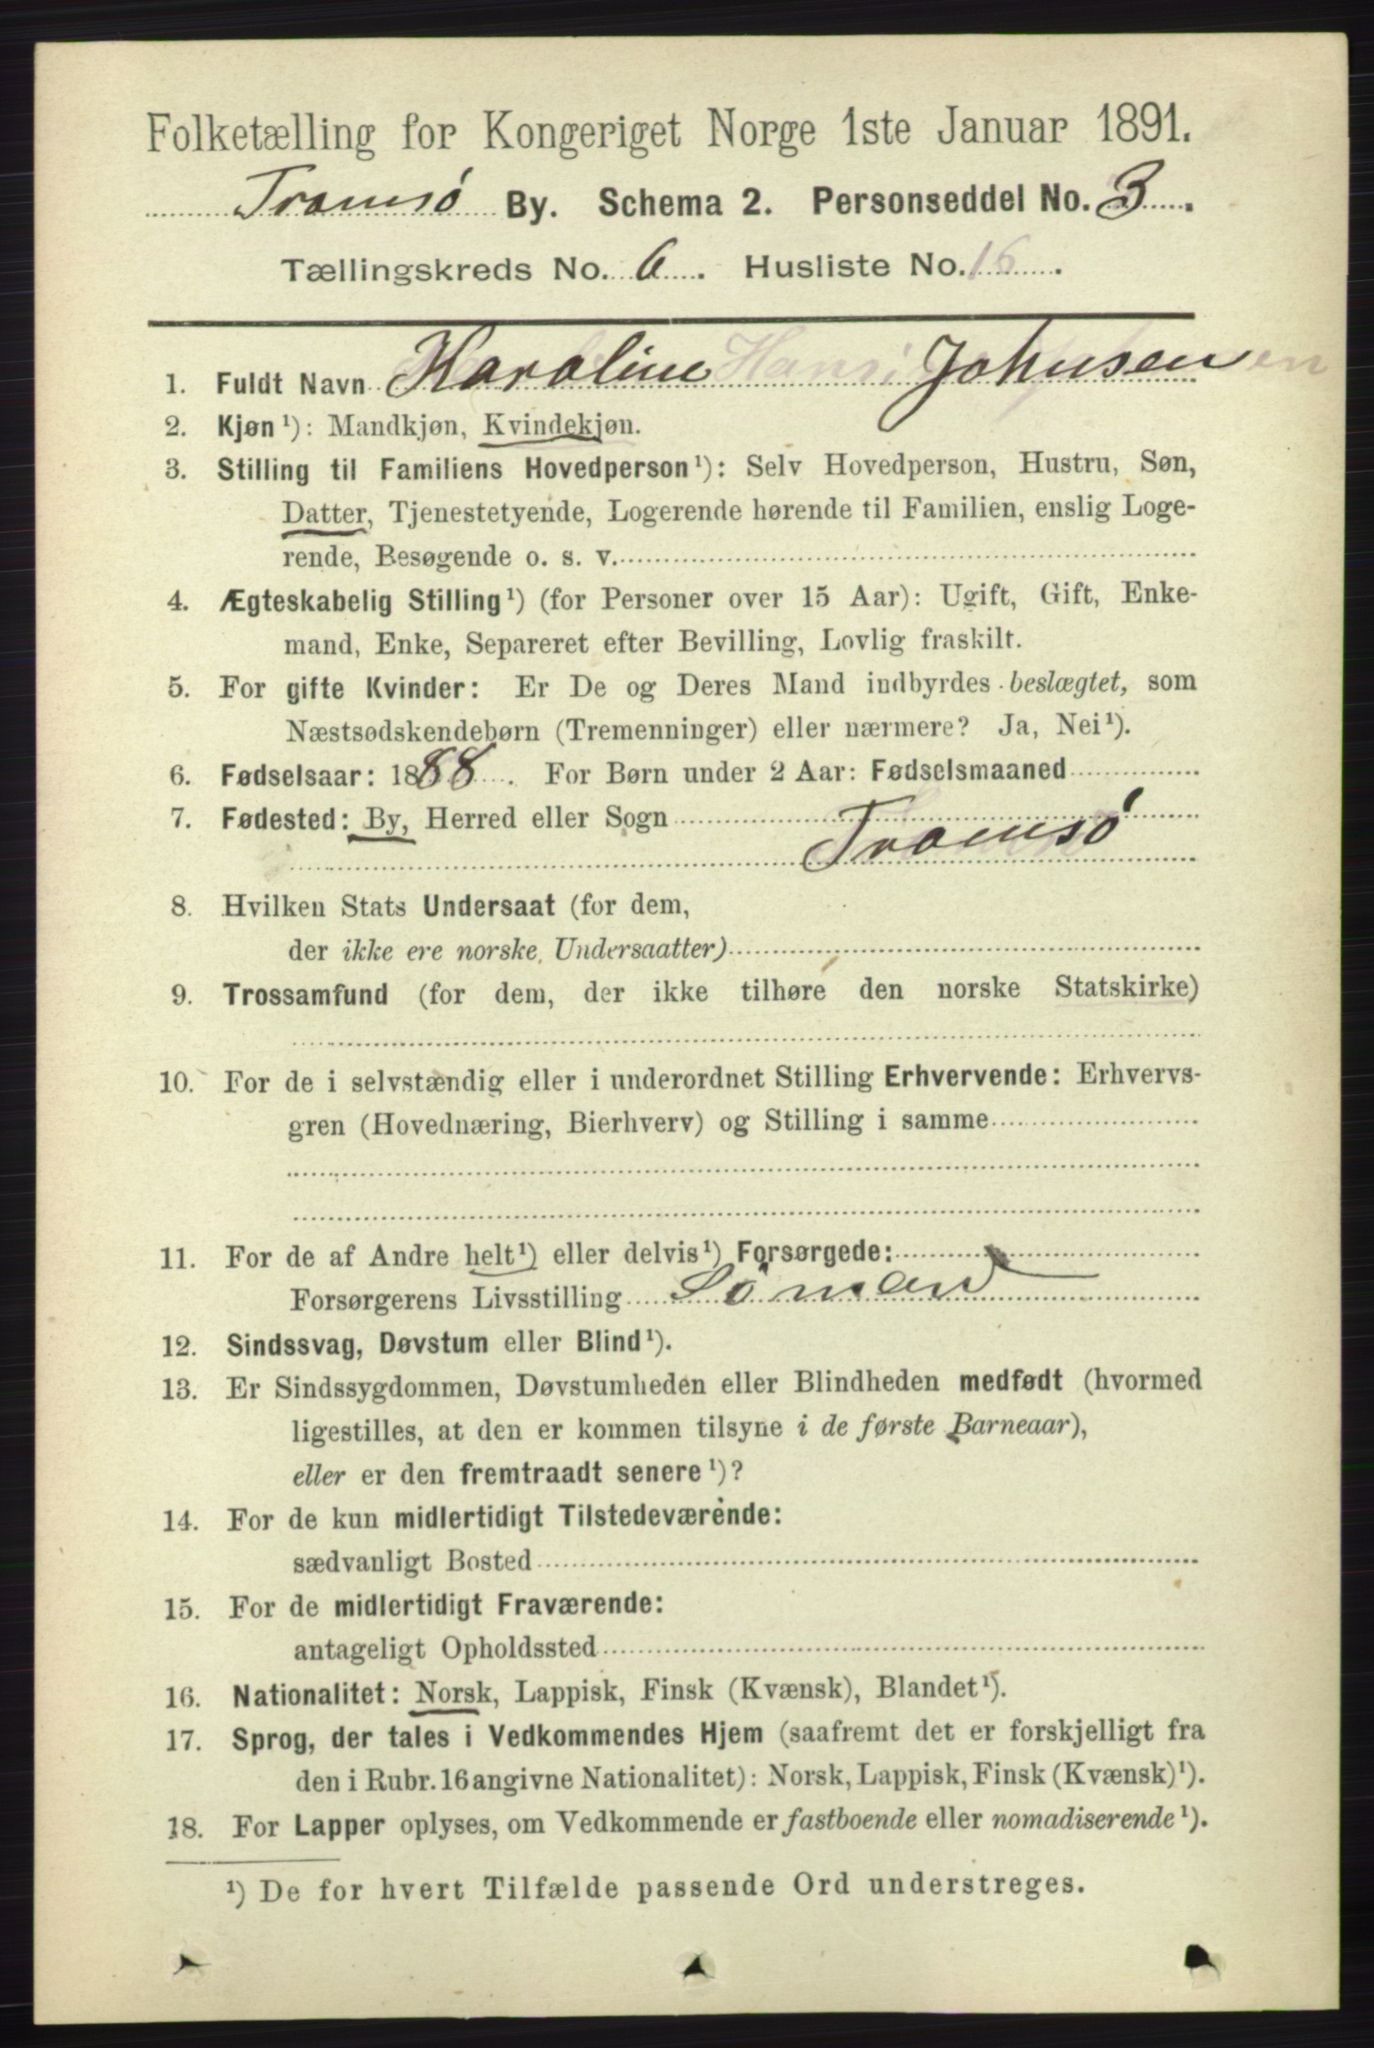 Folketælling for Kongeriget Norge 1ste Januar 1891.
Tromsø By. Schema 2. Personseddel No. 3.
Tællingskreds No. 6. Husliste No. 16.
1. Fuldt Navn Karoline Johnsen
2. Kjøn¹): Mandkjøn, Kvindekjøn.
3. Stilling til Familiens Hovedperson¹): Selv Hovedperson, Hustru, Søn,
Datter, Tjenestetyende, Logerende hørende til Familien, enslig Loge-
rende, Besøgende o. s. v.
4. Ægteskabelig Stilling¹) (for Personer over 15 Aar): Ugift, Gift, Enke-
mand, Enke, Separeret efter Bevilling, Lovlig fraskilt.
5. For gifte Kvinder: Er De og Deres Mand indbyrdes beslægtet, som
Næstsødskendebørn (Tremenninger) eller nærmere? Ja, Nei¹).
6. Fødselsaar: 1888. For Børn under 2 Aar: Fødselsmaaned
7. Fødested: By, Herred eller Sogn
Tromsø
8. Hvilken Stats Undersaat (for dem,
der ikke ere norske Undersaatter)
9. Trossamfund (for dem, der ikke tilhøre den norske Statskirke)
10. For de i selvstændig eller i underordnet Stilling Erhvervende: Erhvervs-
gren (Hovednæring, Bierhverv) og Stilling i samme
11. For de af Andre helt¹) eller delvis¹) Forsørgede:
Forsørgerens Livsstilling Sömand
12. Sindssvag, Døvstum eller Blind¹).
13. Er Sindssygdommen, Døvstumheden eller Blindheden medfødt (hvormed
ligestilles, at den er kommen tilsyne i de første Barneaar),
eller er den fremtraadt senere¹)?
14. For de kun midlertidigt Tilstedeværende:
sædvanligt Bosted
15. For de midlertidigt Fraværende:
antageligt Opholdssted
16. Nationalitet: Norsk, Lappisk, Finsk (Kvænsk), Blandet¹).
17. Sprog, der tales i Vedkommendes Hjem (saafremt det er forskjelligt fra
den i Rubr. 16 angivne Nationalitet): Norsk, Lappisk, Finsk (Kvænsk)¹).
18. For Lapper oplyses, om Vedkommende er fastboende eller nomadiserende¹).
¹) De for hvert Tilfælde passende Ord understreges.